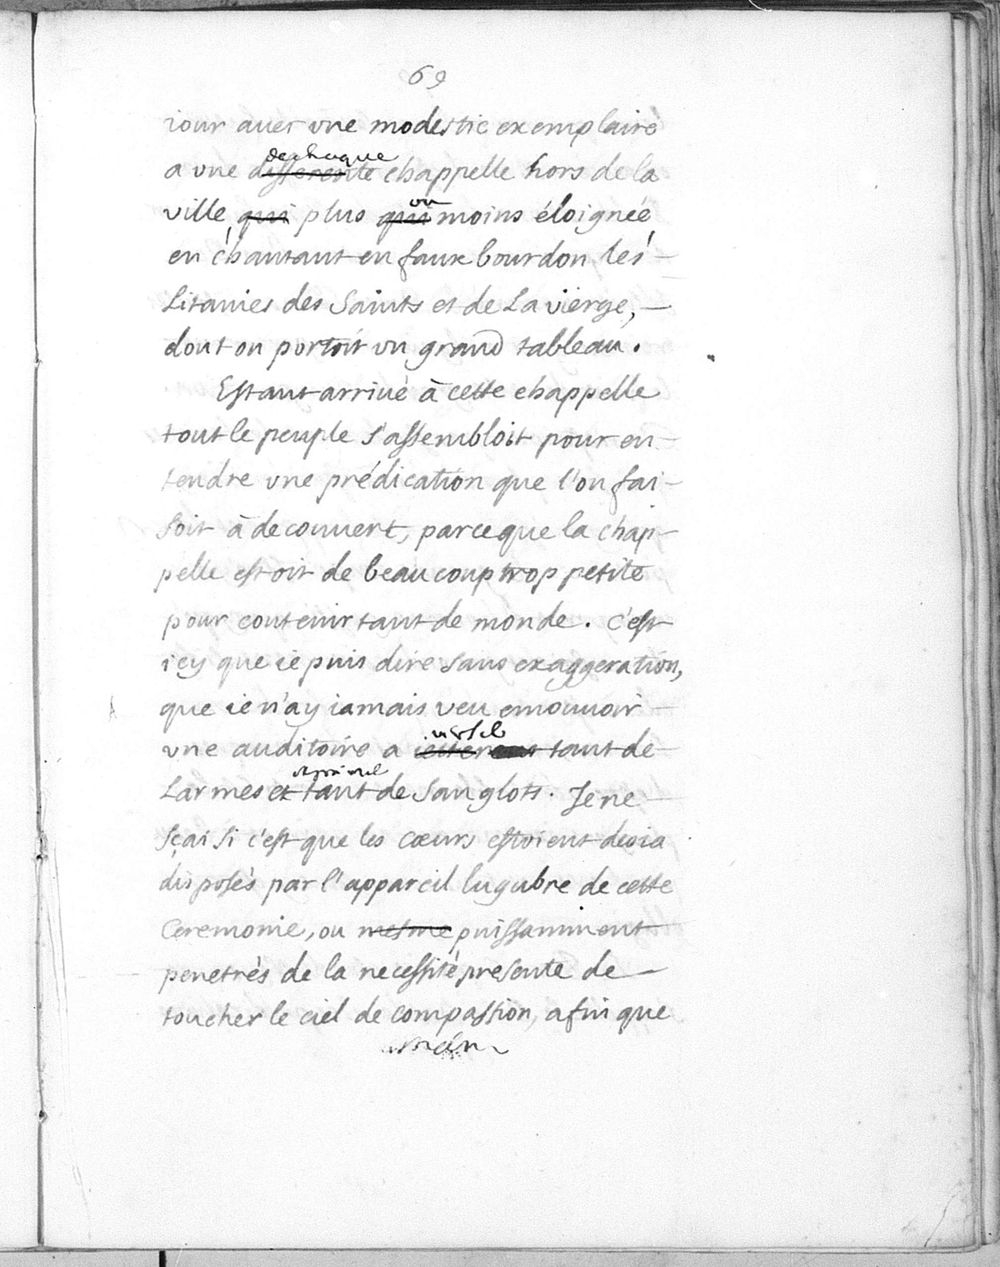 69
iour auec vne modestie exemplaire
de chaque
a vne differente chappelle hors de la
ou
ville, qui plus qui moins éloignée
en chantant en faux bourdon les
Litanies des Saints et de La vierge,
dont on portoit vn grand tableau.
Estant arriué à cette chappelle
tout le peuple s'assembloit pour en-
tendre vne prédication que l'on fai-
soit à decouuert, parceque la chap-
pelle estoit de beaucoup trop petite
pour contenir tant de monde. C'est
icy que ie puis dire sans exaggeration,
que ie n'ay iamais veu emouuoir
vne auditoire a tant de
Larmes et tant de Sanglots. Je ne
sçai si c'est que les cœurs estoient desia
disposés par l'appareil lugubre de cette
Ceremonie, ou mesme puissamment
penetrés de la necessité presente de
toucher le ciel de compassion, afin que